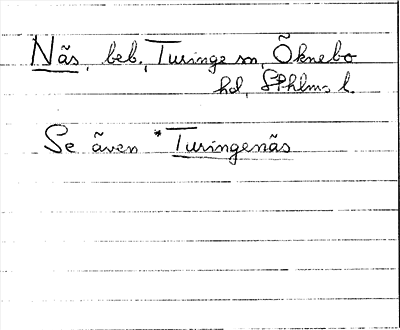 Näs, beb., Turinge sn, Öknebo
hd, Sthlms l.
Se även *Turingenäs